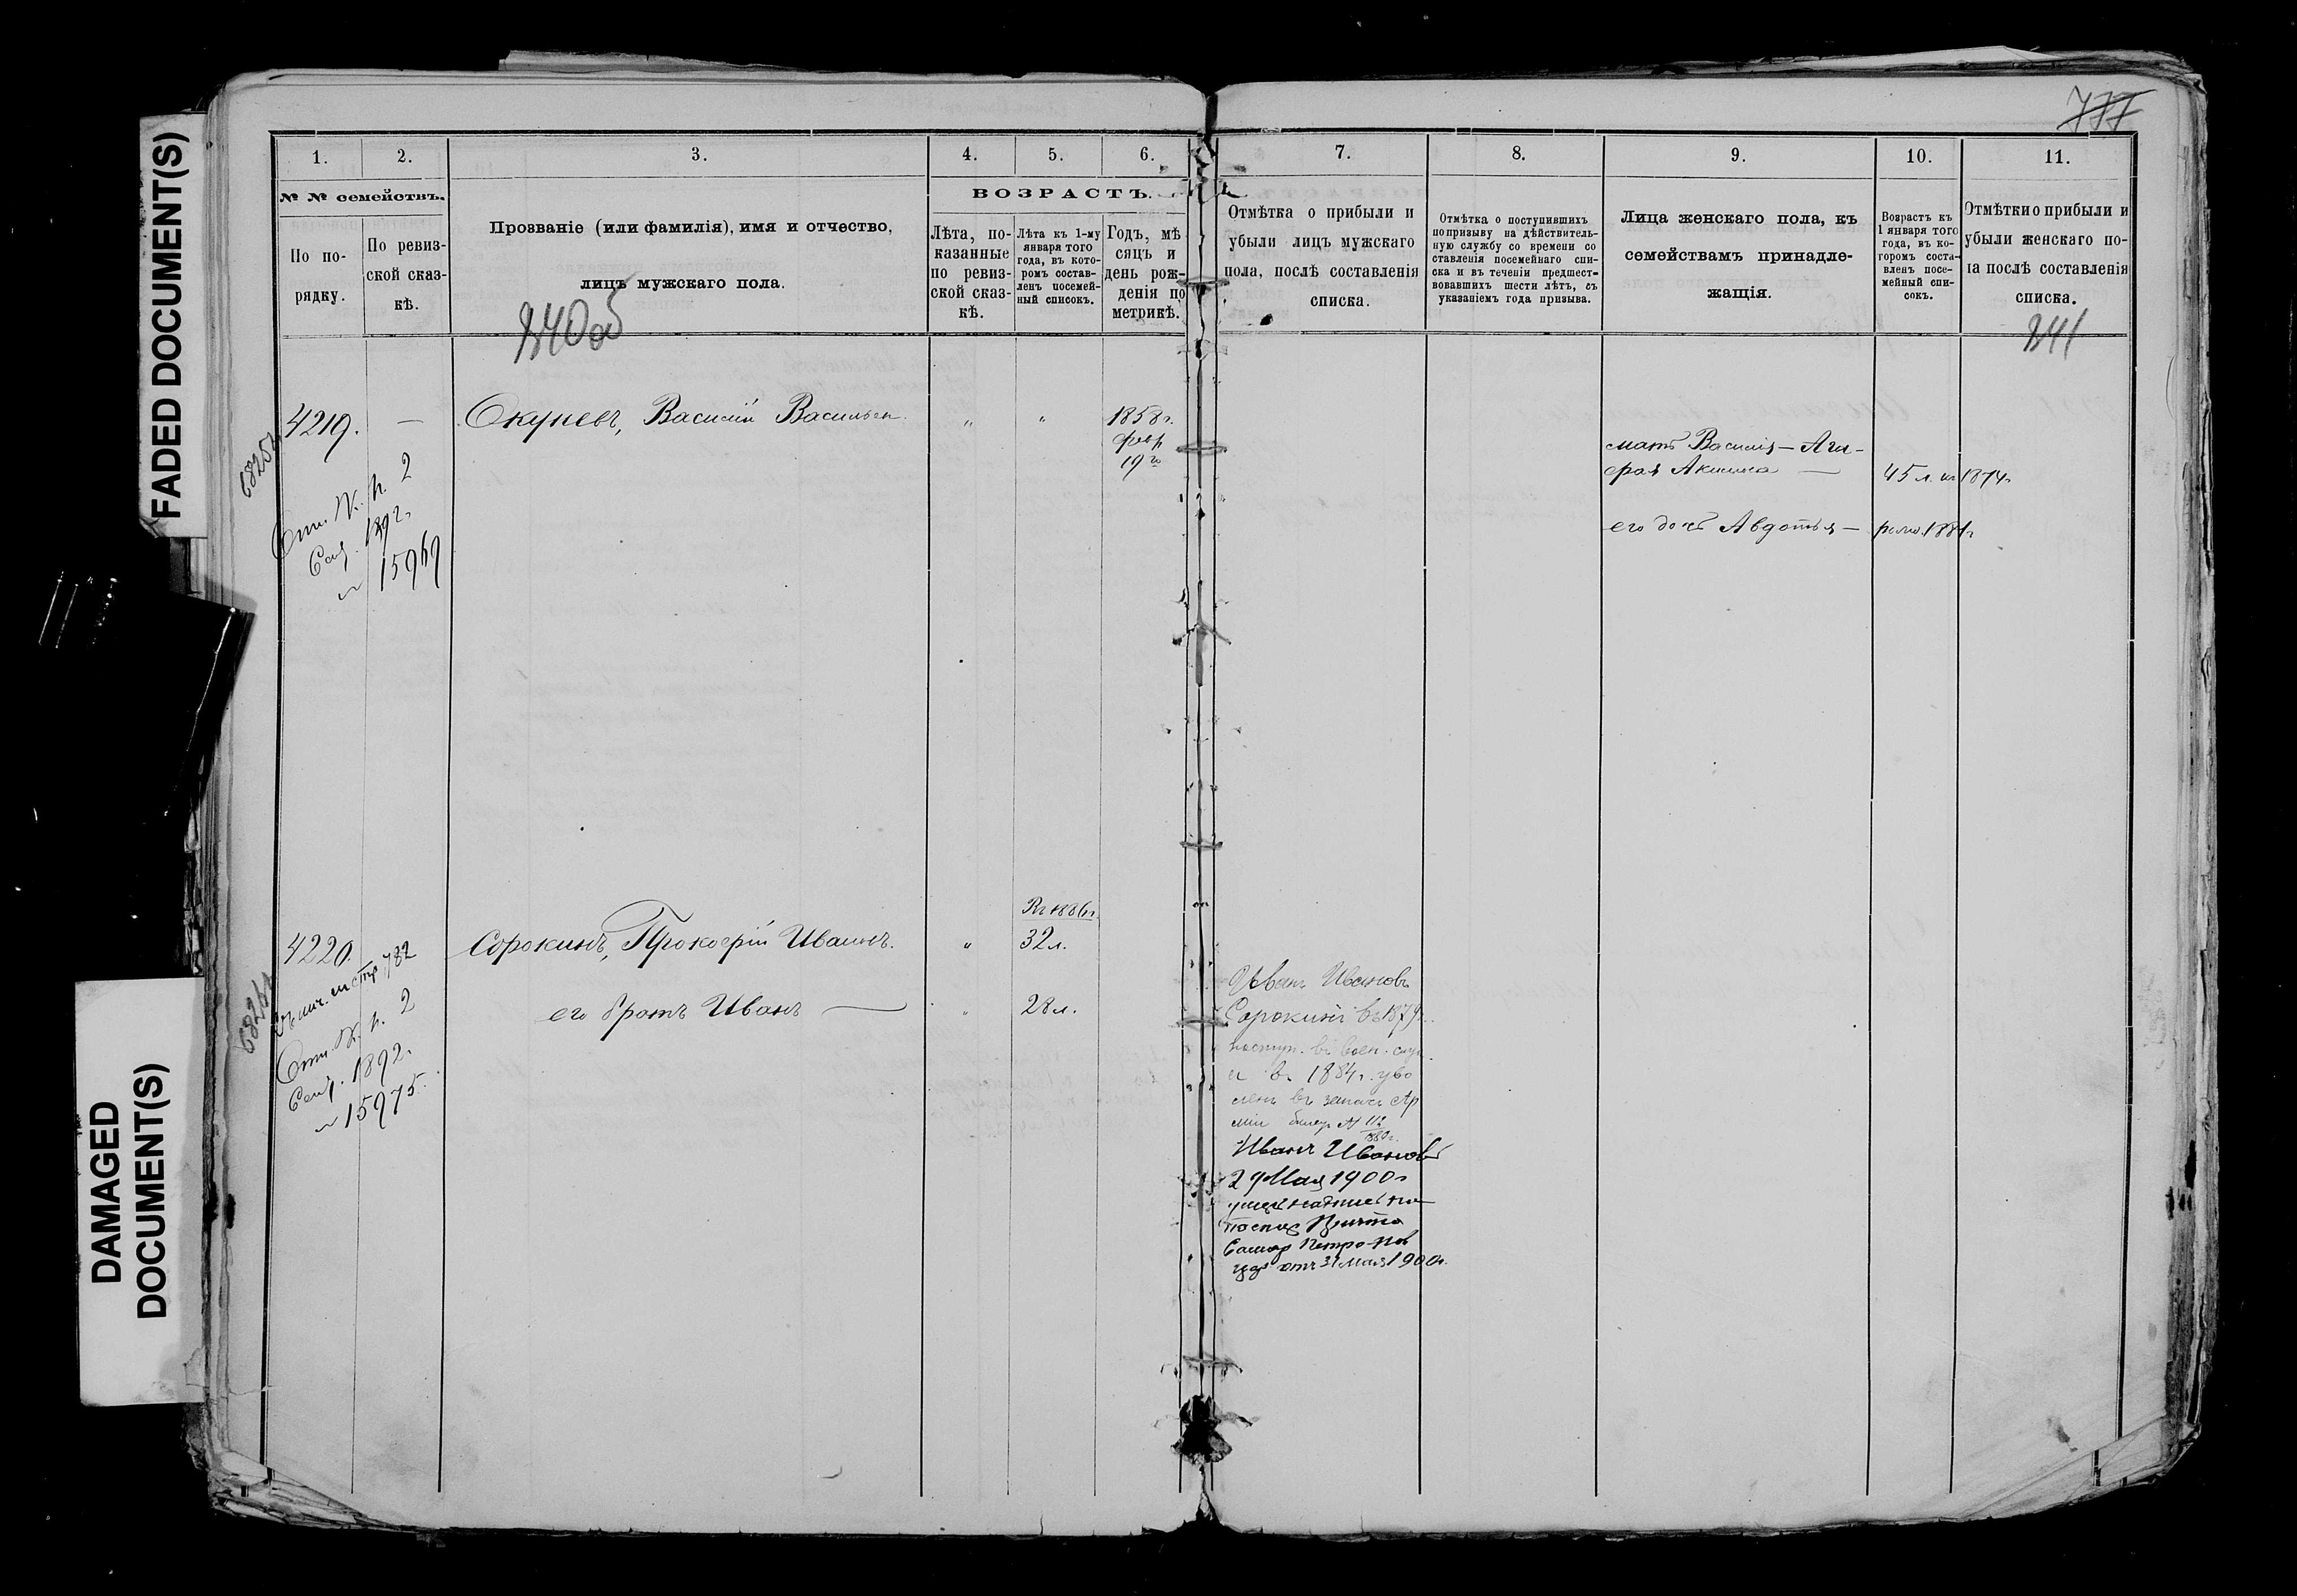 FADED DOCUMENT(S)
DAMAGED
DOCUMENT(S)
777
1.
2.
3.
4.
5.
6.
№ № семействъ.
По по-
рядку.
По ревиз-
ской сказ-
кѣ.
Прозваніе (или фамилія), имя и отчество,
лицъ мужскаго пола.
840 об
ВОЗРАСТЪ.
Лѣта, по-
казанные
по ревиз-
ской сказ-
кѣ.
Лѣта къ 1-му
января того
года, въ кото-
ромъ состав-
ленъ посемей-
ный списокъ.
Годъ, мѣ
сяцъ и
день рож-
денія по
метрикѣ.
7.
8.
9.
10.
11.
Отмѣтка о прибыли и
убыли лицъ мужскаго
пола, послѣ составленія
списка.
Отмѣтка о поступившихъ
по призыву на дѣйствитель-
ную службу со времени со
ставленія посемейнаго спи-
ска и въ теченіи предшест-
вовавшихъ шести лѣтъ, съ
указаніемъ года призыва.
Лица женскаго пола, къ
семействамъ принадле-
жащія.
Возрастъ къ
1 января того
года, въ ко-
горомъ соста-
вленъ посе-
мейный спи-
сокъ.
Отмѣтки о прибыли и
убыли женскаго по-
ла послѣ составленія
списка.
841
4219. —
Окуневъ, Василій Васильев.
" "
1858г.
февр
19го
мать Василія —
45 л. въ 1874г
его дочь Авдотья —
1881г
2
1892г.
15969
4220.
Сорокинъ, Прокофій Иванъ.
"
Къ 1886г.
32л.
его братъ Иванъ —
"
28л.
стр 782
2
1892.
15975.
Иванъ Ивановъ
Сорокинъ въ 1879г.
поступ. въ воен. служ.
и въ 1884г. уво
ленъ въ запасъ Ар
міи билет №
Иванъ Ивановъ
29 Мая 1900г
отъ 31 мая 1900г.